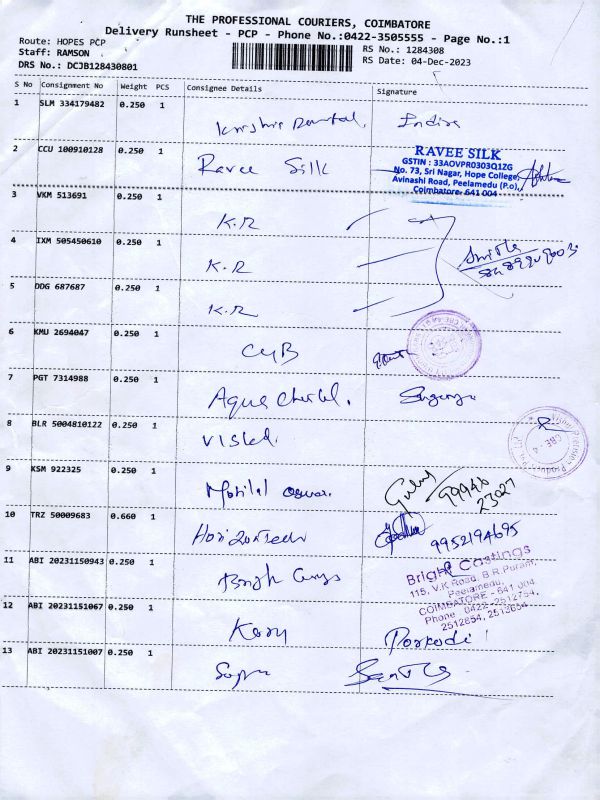 THE PROFESSIONAL COURIERS, COIMBATORE
Delivery Runsheet - PCP - Phone No.:0422-3505555 - Page No.:1
Route: HOPES PCP
Staff: RAMSON
DRS No.: DCJB128430801
RS No.: 1284308
RS Date: 04-Dec-2023
S No Consignment No Weight PCS Consignee Details Signature
1 SLM 334179482 0.250 1 Indira
2 CCU 100910128 0.250 1 Ravee Silk
RAVEE SILK
GSTIN : 33AOVPR0303Q1ZG
No. 73, Sri Nagar, Hope College,
Avinashi Road, Peelamedu (P.o),
Coimbatore- 641 004
3 VKM 513691 0.250 1 K.R
4 IXM 505450610 0.250 1 K.R
5 DDG 687687 0.250 1 K.R
6 KMU 2694047 0.250 1 CUB
7 PGT 7314988 0.250 1 Aqua
8 BLR 5004810122 0.250 1
CBE-4
9 KSM 922325 0.250 1 Motilal Oswal
99948
23027
10 TRZ 50009683 0.660 1
9952194695
11 ABI 20231150943 0.250 1
Bright Castings
115, V.K Road, B.R.Puram,
Peelamedu,
COIMBATORE - 641 004
Phone : 0422-2512754,
2512854, 2513654
12 ABI 20231151067 0.250 1 Porkodi
13 ABI 20231151007 0.250 1